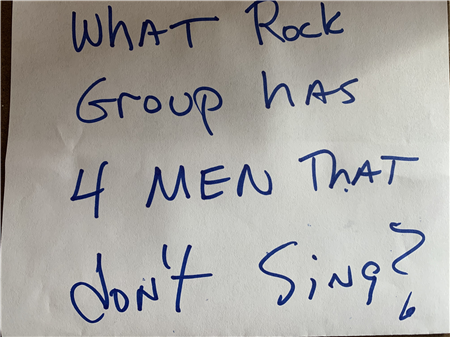 WHAT Rock
Group hAS
4 MEN ThAT
don't Sing?